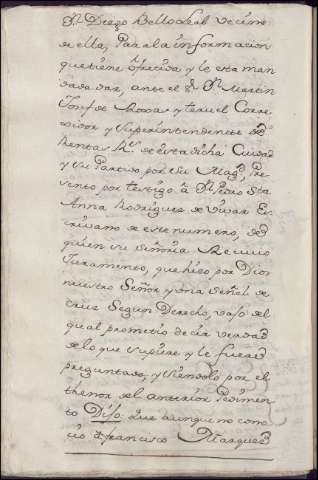 Dn. Diego Bello Leal vecino
de ella, Para la informacion
que tiene ofrecida y le esta man
dada dar, ante el Sr. Dn. Martin
Josef de Roxas y teruel Corre
xidor y Superintendente de
Rentas Rs. de esta dicha Ciudad
y su Partido, por su Magd., Pre
sento por testigo a Dn. Pedro Sta.
Anna Rodriguez de Vivar Es
crivano de este numero, de
quien su Señoria Recivio
Juramento, que hizo por Dios
nuestro Señor y una Señal de
Cruz Segun Derecho, vajo del
qual prometio decir verdad
de lo que supiere y le fuere
preguntado, y siendolo por el
thenor del anterior Pedimen
to Dijo: Que aunque no cono
cio a francisco Marquez